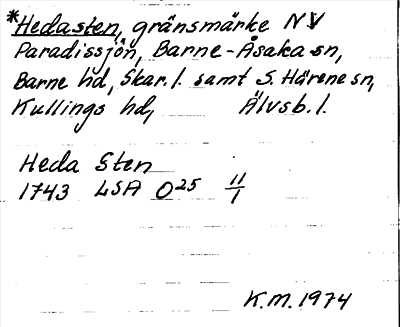 *Hedasten, gränsmärke NV
Paradissjön, Barne-Åsaka sn,
Barne hd, Skar. l. samt S. Härene sn,
Kullings hd, Älvsb. l.
Heda Sten
1743 LSA O25 11/1
K.M. 1974